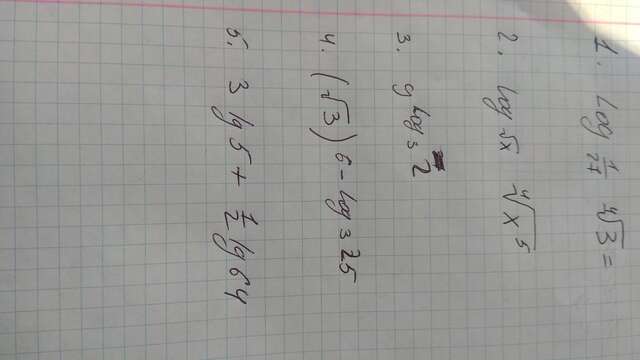 1. log 1/27 ⁴√3 =
2. log √x ⁴√x⁵
3. 9 log₃ 2
4. (√3) 6 - log₃ 25
5. 3 lg 5 + 1/2 lg 64